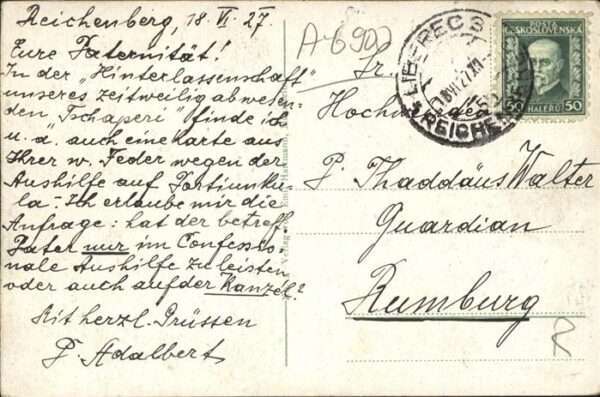 Reichenberg, 18. VI. 27
Eure Paternität!
In der „Hinterlassenschaft"
unseres zeitweilig abwesen-
den „Tschaperi" finde ich
u. a. auch eine Karte aus
Ihrer w. Feder wegen der
Aushilfe auf Portiunku-
la - Ich erlaube mir die
Anfrage: hat der betreff.
Pater nur im Confessio-
nale Aushilfe zu leisten
oder auch auf der Kanzel?
Mit herzl. Grüssen
P. Adalbert
A-6902
Hochwürden
P. Thaddäus Walter
Guardian
Rumburg
POSTA
ČESKOSLOVENSKÁ
50 HALÉŘŮ 50
LIBEREC
REICHEN